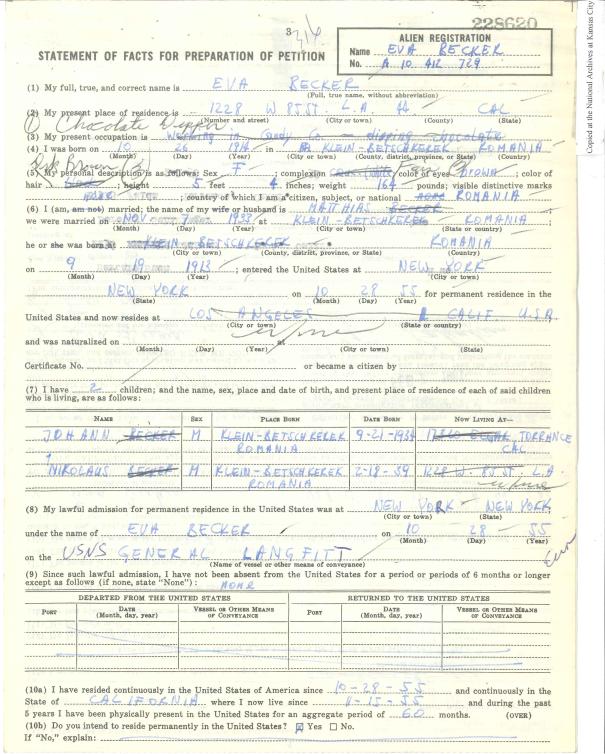 228620
3
ALIEN REGISTRATION
Name EVA BECKER
No. A 10 412 729
STATEMENT OF FACTS FOR PREPARATION OF PETITION
(1) My full, true, and correct name is EVA BECKER
(Full, true name, without abbreviation)
(2) My present place of residence is 1228 W 85 ST. L.A. 44 CAL
(Number and street) (City or town) (County) (State)
① Chocolate Dipper
(3) My present occupation is Working in Candy Co - dipping chocolate
(4) I was born on 10 26 1914 in KLEIN-BETSCHKEREK ROMANIA
(Month) (Day) (Year) (City or town) (County, district, province, or State) (Country)
(5) My personal description is as follows: Sex F; complexion; color of eyes BROWN; color of
hair; height 5 feet 4 inches; weight 164 pounds; visible distinctive marks
; country of which I am a citizen, subject, or national ROMANIA
(6) I (am, am not) married, the name of my wife or husband is MATTHIAS BECKER;
we were married on NOV 1933 at KLEIN-BETSCHKEREK ROMANIA;
(Month) (Day) (Year) (City or town) (State or country)
he or she was born at KLEIN-BETSCHKEREK ROMANIA
(City or town) (County, district, province, or State) (Country)
on 9 19 1913; entered the United States at NEW YORK
(Month) (Day) (Year) (City or town)
NEW YORK on 10 28 55 for permanent residence in the
(State) (Month) (Day) (Year)
United States and now resides at LOS ANGELES CALIF U.S.A.
(City or town) (State or country)
and was naturalized on at
(Month) (Day) (Year) (City or town) (State)
Certificate No. or became a citizen by
(7) I have 2 children; and the name, sex, place and date of birth, and present place of residence of each of said children
who is living, are as follows:
NAME SEX PLACE BORN DATE BORN NOW LIVING AT—
JOHANN BECKER M KLEIN-BETSCHKEREK 9-21-1934 TORRANCE
ROMANIA CAL
NIKOLAUS BECKER M KLEIN-BETSCHKEREK 2-18-39 1228 W. 85 ST. L.A.
ROMANIA
(8) My lawful admission for permanent residence in the United States was at NEW YORK NEW YORK
(City or town) (State)
under the name of EVA BECKER on 10 28 55
(Month) (Day) (Year)
on the USNS GENERAL LANGFITT
(Name of vessel or other means of conveyance)
(9) Since such lawful admission, I have not been absent from the United States for a period or periods of 6 months or longer
except as follows (if none, state "None"): NONE
DEPARTED FROM THE UNITED STATES RETURNED TO THE UNITED STATES
PORT DATE (Month, day, year) VESSEL OR OTHER MEANS OF CONVEYANCE PORT DATE (Month, day, year) VESSEL OR OTHER MEANS OF CONVEYANCE
(10a) I have resided continuously in the United States of America since 10-28-55 and continuously in the
State of CALIFORNIA where I now live since 11-15-55 and during the past
5 years I have been physically present in the United States for an aggregate period of 60 months. (OVER)
(10b) Do you intend to reside permanently in the United States? ☒ Yes ☐ No.
If "No," explain:
Copied at the National Archives at Kansas City